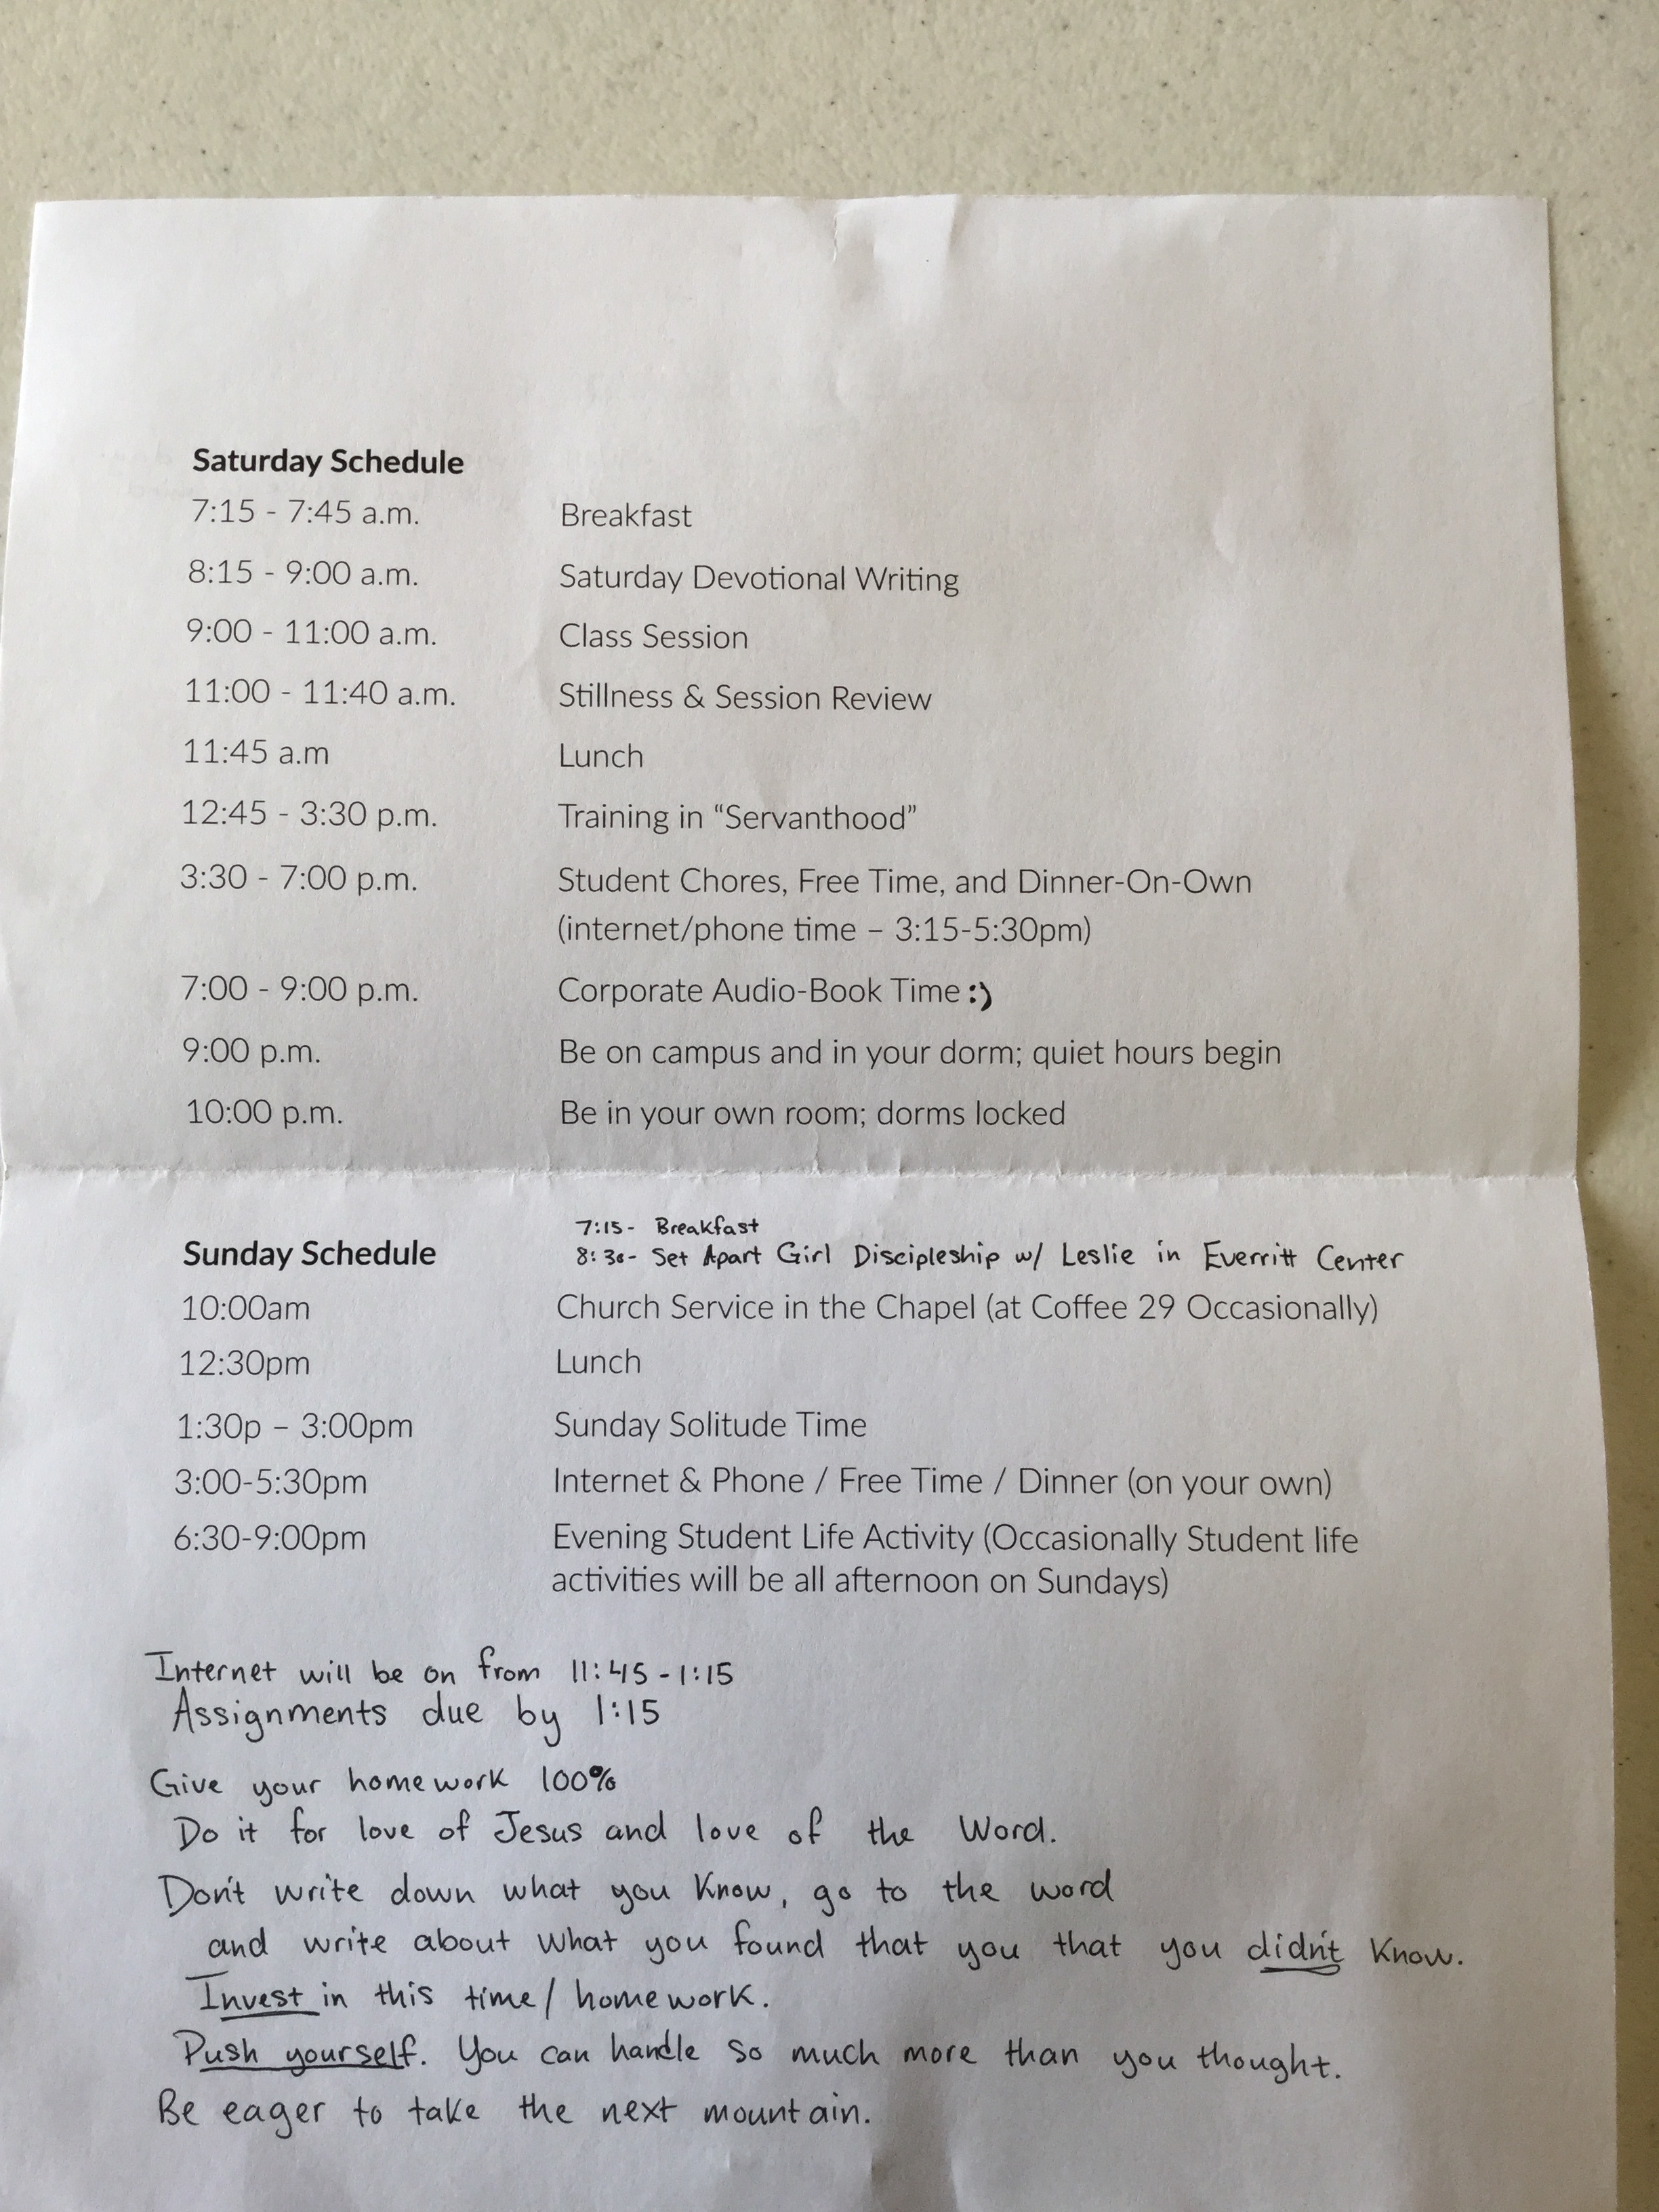 Saturday Schedule
7:15 - 7:45 a.m. Breakfast
8:15 - 9:00 a.m. Saturday Devotional Writing
9:00 - 11:00 a.m. Class Session
11:00 - 11:40 a.m. Stillness & Session Review
11:45 a.m Lunch
12:45 - 3:30 p.m. Training in “Servanthood”
3:30 - 7:00 p.m. Student Chores, Free Time, and Dinner-On-Own
(internet/phone time – 3:15-5:30pm)
7:00 - 9:00 p.m. Corporate Audio-Book Time :)
9:00 p.m. Be on campus and in your dorm; quiet hours begin
10:00 p.m. Be in your own room; dorms locked
7:15- Breakfast
Sunday Schedule 8:30- Set Apart Girl Discipleship w/ Leslie in Everritt Center
10:00am Church Service in the Chapel (at Coffee 29 Occasionally)
12:30pm Lunch
1:30p – 3:00pm Sunday Solitude Time
3:00-5:30pm Internet & Phone / Free Time / Dinner (on your own)
6:30-9:00pm Evening Student Life Activity (Occasionally Student life
activities will be all afternoon on Sundays)
Internet will be on from 11:45-1:15
Assignments due by 1:15
Give your homework 100%
Do it for love of Jesus and love of the Word.
Don't write down what you know, go to the word
and write about what you found that you that you didn't know.
Invest in this time/homework.
Push yourself. You can handle so much more than you thought.
Be eager to take the next mountain.